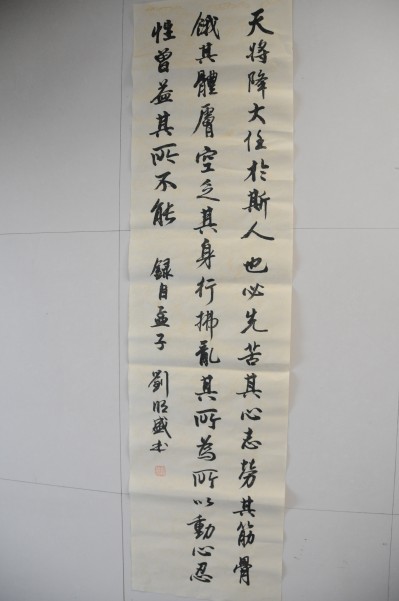 天將降大任於斯人也必先苦其心志勞其筋骨
餓其體膚空乏其身行拂亂其所為所以動心忍
性曾益其所不能 錄自孟子 劉明盛书